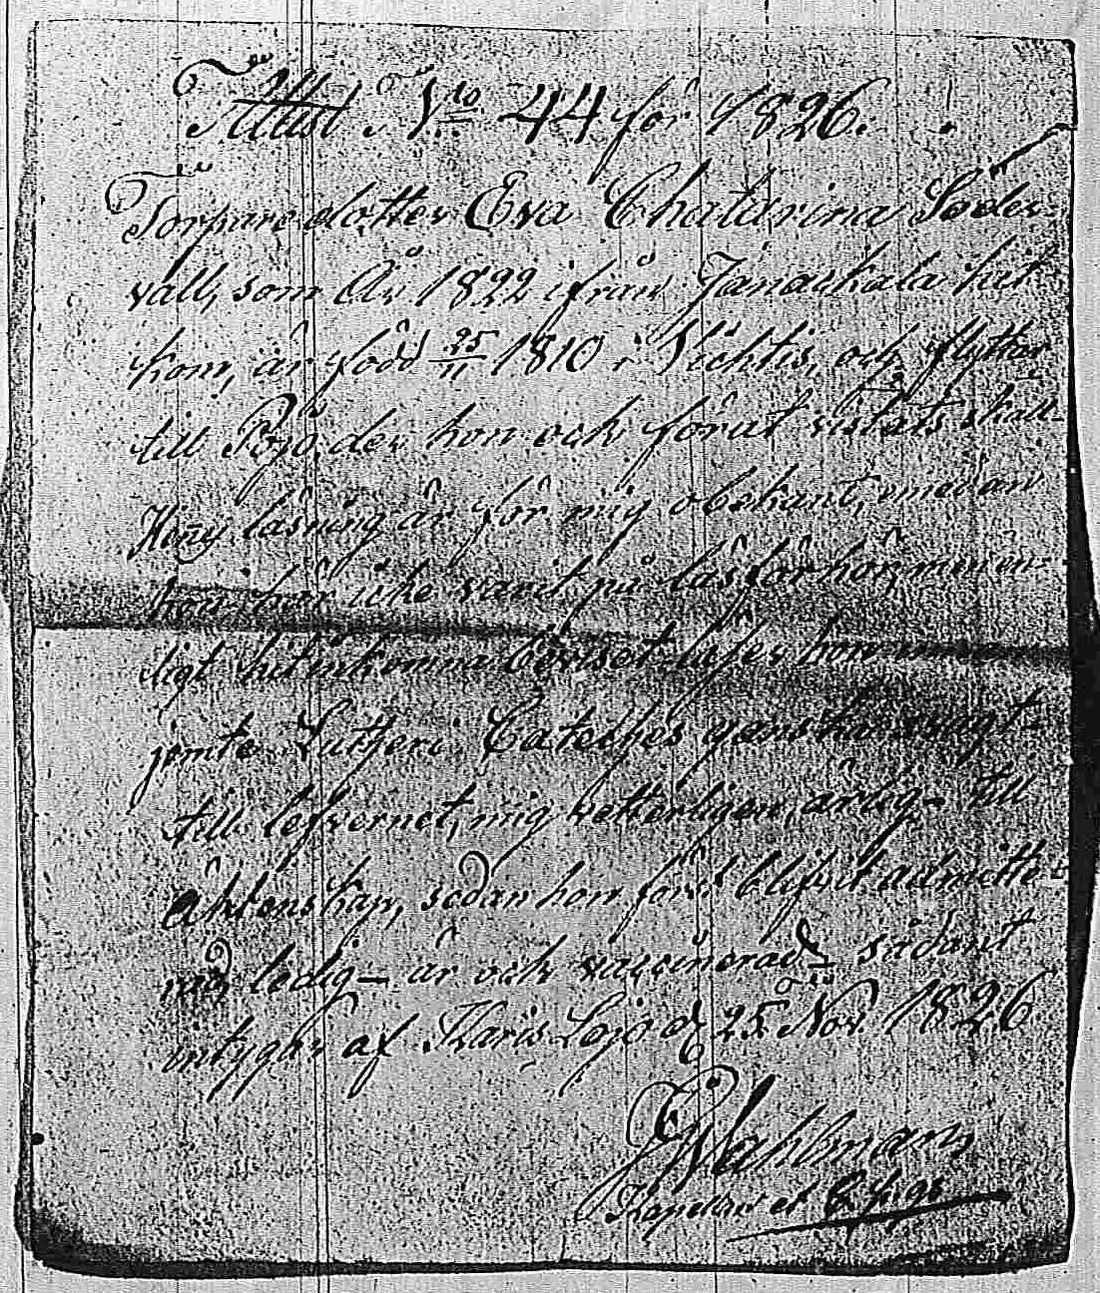 Attest No 44 för 1826.
Torpare dotter Eva Chatarina Söder-
vall, som År 1822 ifrån Janackala hit
kom, är född 25/11 1810 i Vichtis, och flyttar
till Pojo, der hon och förut vistats
läsning är för mig obekant, emedan
hon här icke varit på läsförhör, men en-
ligt hitinkomna beviset läser hon
jemte Lutheri Cateches ganska svagt
till lefvernet, mig vetterligen, ärlig – till
äktenskap, sedan hon förut blifvit admitte-
rad, ledig – är och vaccinerad – sådant
intygas af Karis Lojo d 25 Nov. 1826
Wahlman
Kapellan et